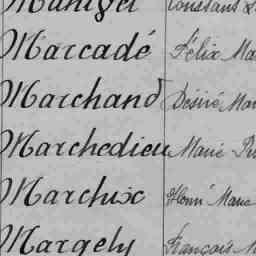 Marcadé Félix Ma
Marchand Désiré Mar
Marchedieu Marie
Marchix Henri Marie
Margely François M